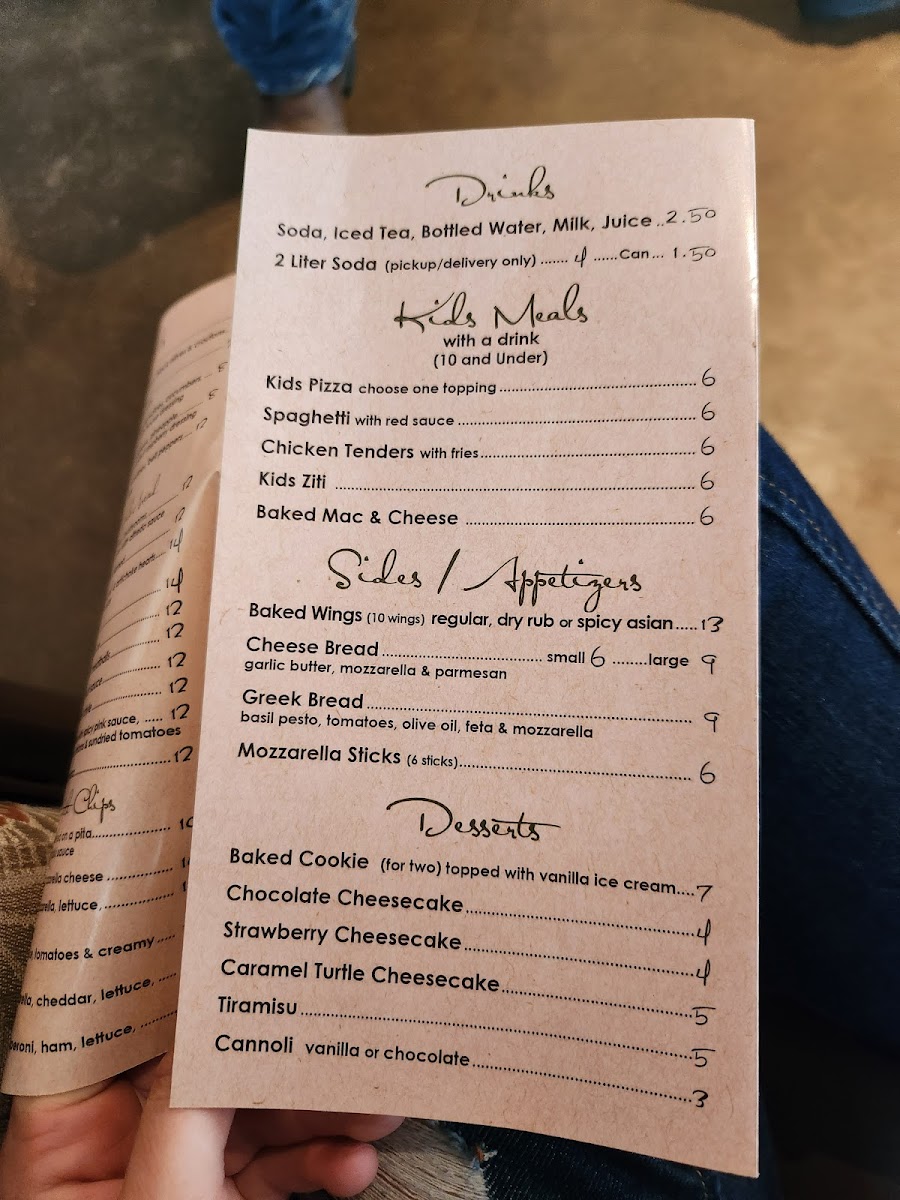 Drinks
Soda, Iced Tea, Bottled Water, Milk, Juice ..2.50
2 Liter Soda (pickup/delivery only) ....... 4 ......Can... 1.50
Kids Meals
with a drink
(10 and Under)
Kids Pizza choose one topping ........ 6
Spaghetti with red sauce ........ 6
Chicken Tenders with fries ........ 6
Kids Ziti ........ 6
Baked Mac & Cheese ........ 6
Sides / Appetizers
Baked Wings (10 wings) regular, dry rub or spicy asian.....13
Cheese Bread ........ small 6 ........large 9
garlic butter, mozzarella & parmesan
Greek Bread ........ 9
basil pesto, tomatoes, olive oil, feta & mozzarella
Mozzarella Sticks (6 sticks) ........ 6
Desserts
Baked Cookie (for two) topped with vanilla ice cream....7
Chocolate Cheesecake ........ 4
Strawberry Cheesecake ........ 4
Caramel Turtle Cheesecake ........ 5
Tiramisu ........ 5
Cannoli vanilla or chocolate ........ 3
dressing
dressing
peppers.... 12
12
alfredo sauce
12
artichoke hearts..... 14
14
12
12
12
12
pink sauce, ..... 12
& sundried tomatoes
12
Chips
on a pita
sauce
cheese
lettuce,
tomatoes & creamy .....
cheddar, lettuce, .....
ham, lettuce, ........